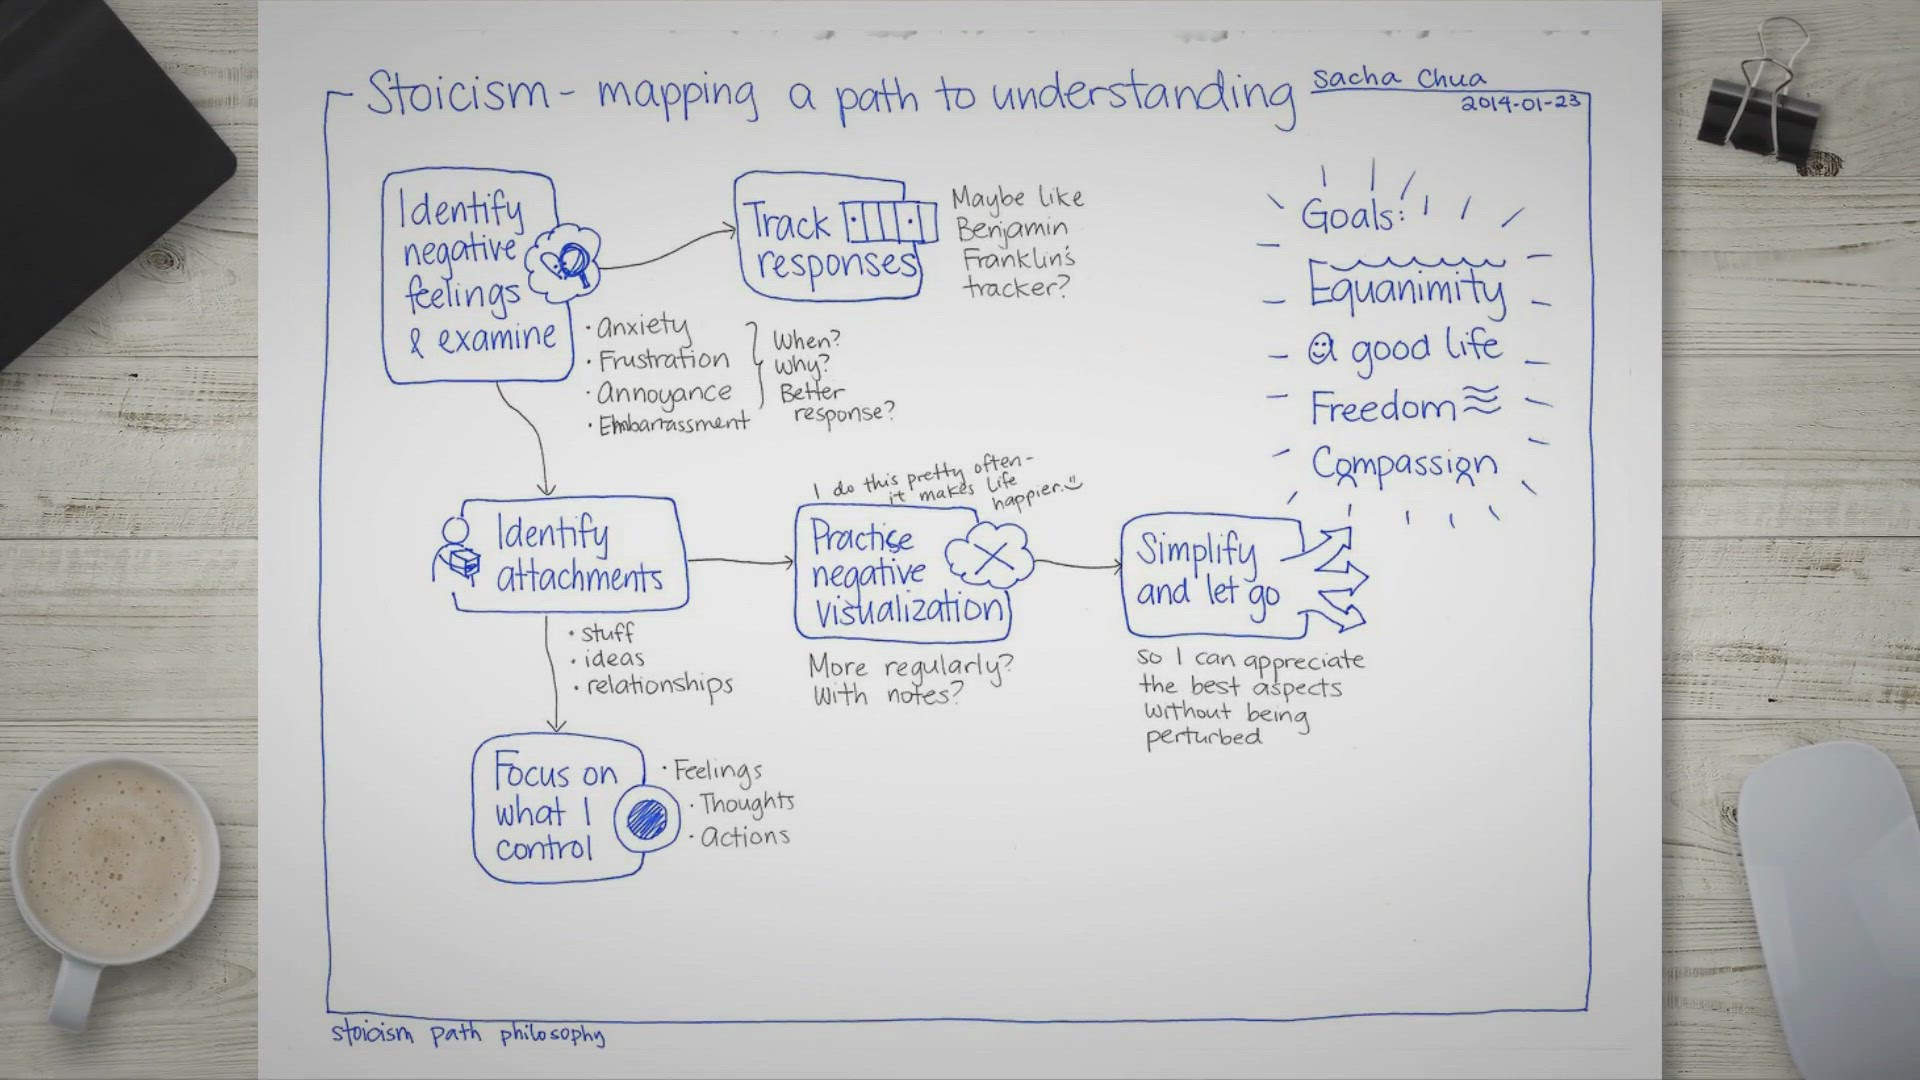 Stoicism - mapping a path to understanding
Sacha Chua
2014-01-23
Identify
negative
feelings
& examine
Track
responses
Maybe like
Benjamin
Franklin's
tracker?
• Anxiety
• Frustration
• Annoyance
• Embarrassment
When?
Why?
Better
response?
Goals:
Equanimity
a good life
Freedom
Compassion
Identify
attachments
• stuff
• ideas
• relationships
I do this pretty often-
it makes life
happier.
Practise
negative
visualization
More regularly?
With notes?
Simplify
and let go
so I can appreciate
the best aspects
without being
perturbed
Focus on
what I
control
• Feelings
• Thoughts
• Actions
stoicism path philosophy